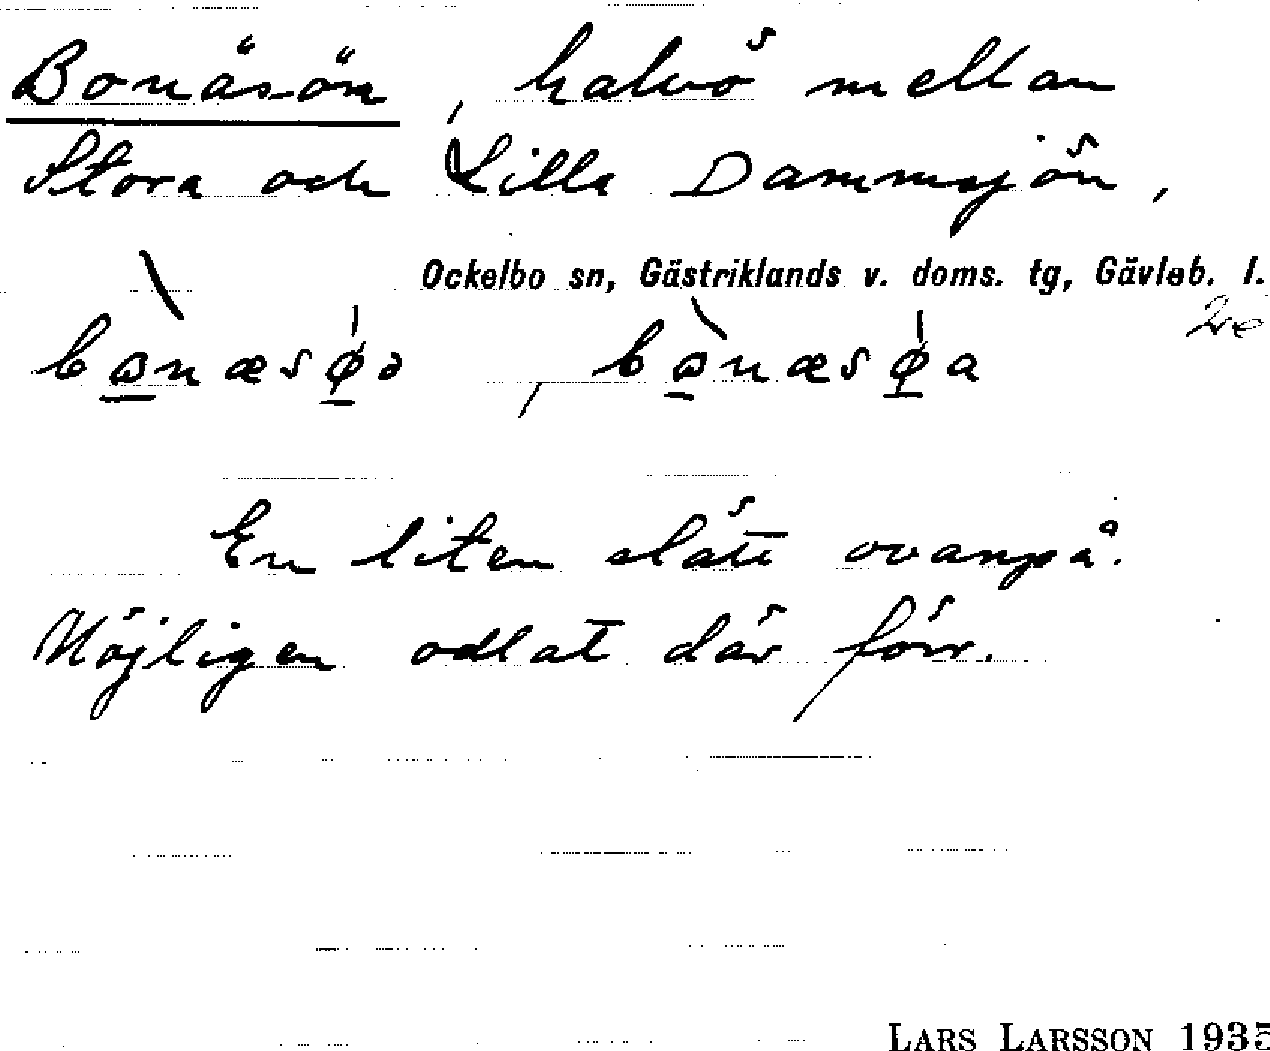 Bonäsön, halvö mellan
Stora och Lilla Dammsjön,
Ockelbo sn, Gästriklands v. doms. tg, Gävleb. l.
bɷ̀næsø̍ə, bɷ̀næsø̍a
En liten slått ovanpå.
Möjligen odlat där förr.
LARS LARSSON 1935